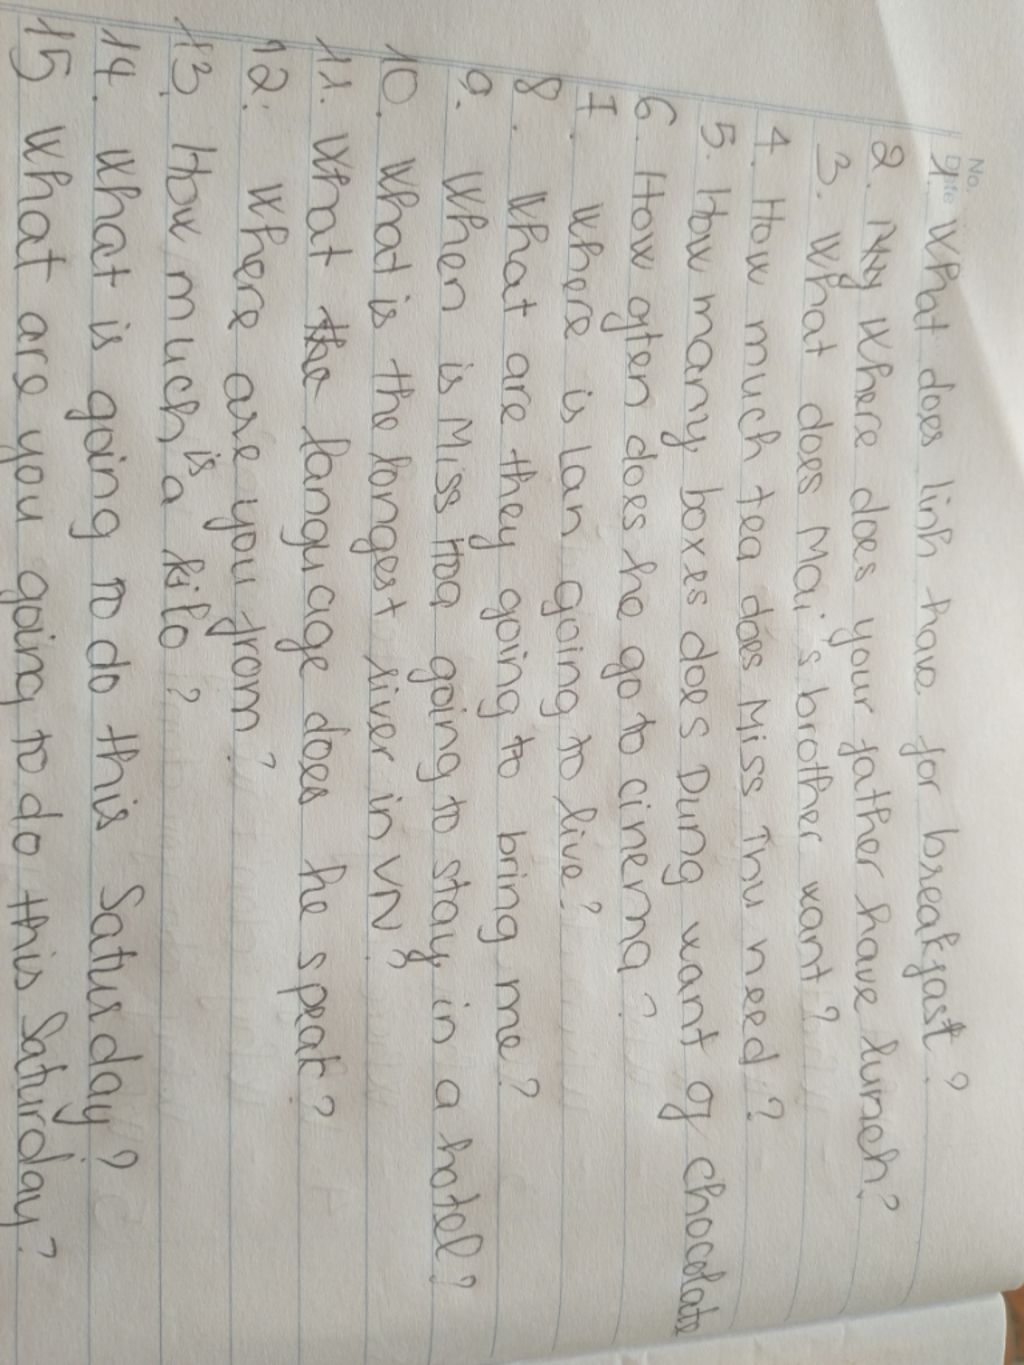 No.
Date
1. What does linh have for breakfast?
2. Where does your father have lunch?
3. What does Mai's brother want?
4. How much tea does Miss Thu need?
5. How many boxes does Dung want of chocolate
6. How often does he go to cinema?
7. Where is Lan going to live?
8. What are they going to bring me?
9. When is Miss Hoa going to stay in a hotel?
10. What is the longest river in VN?
11. What the language does he speak?
12. Where are you from?
13. How much is a kilo?
14. What is going to do this Saturday?
15 What are you going to do this Saturday?